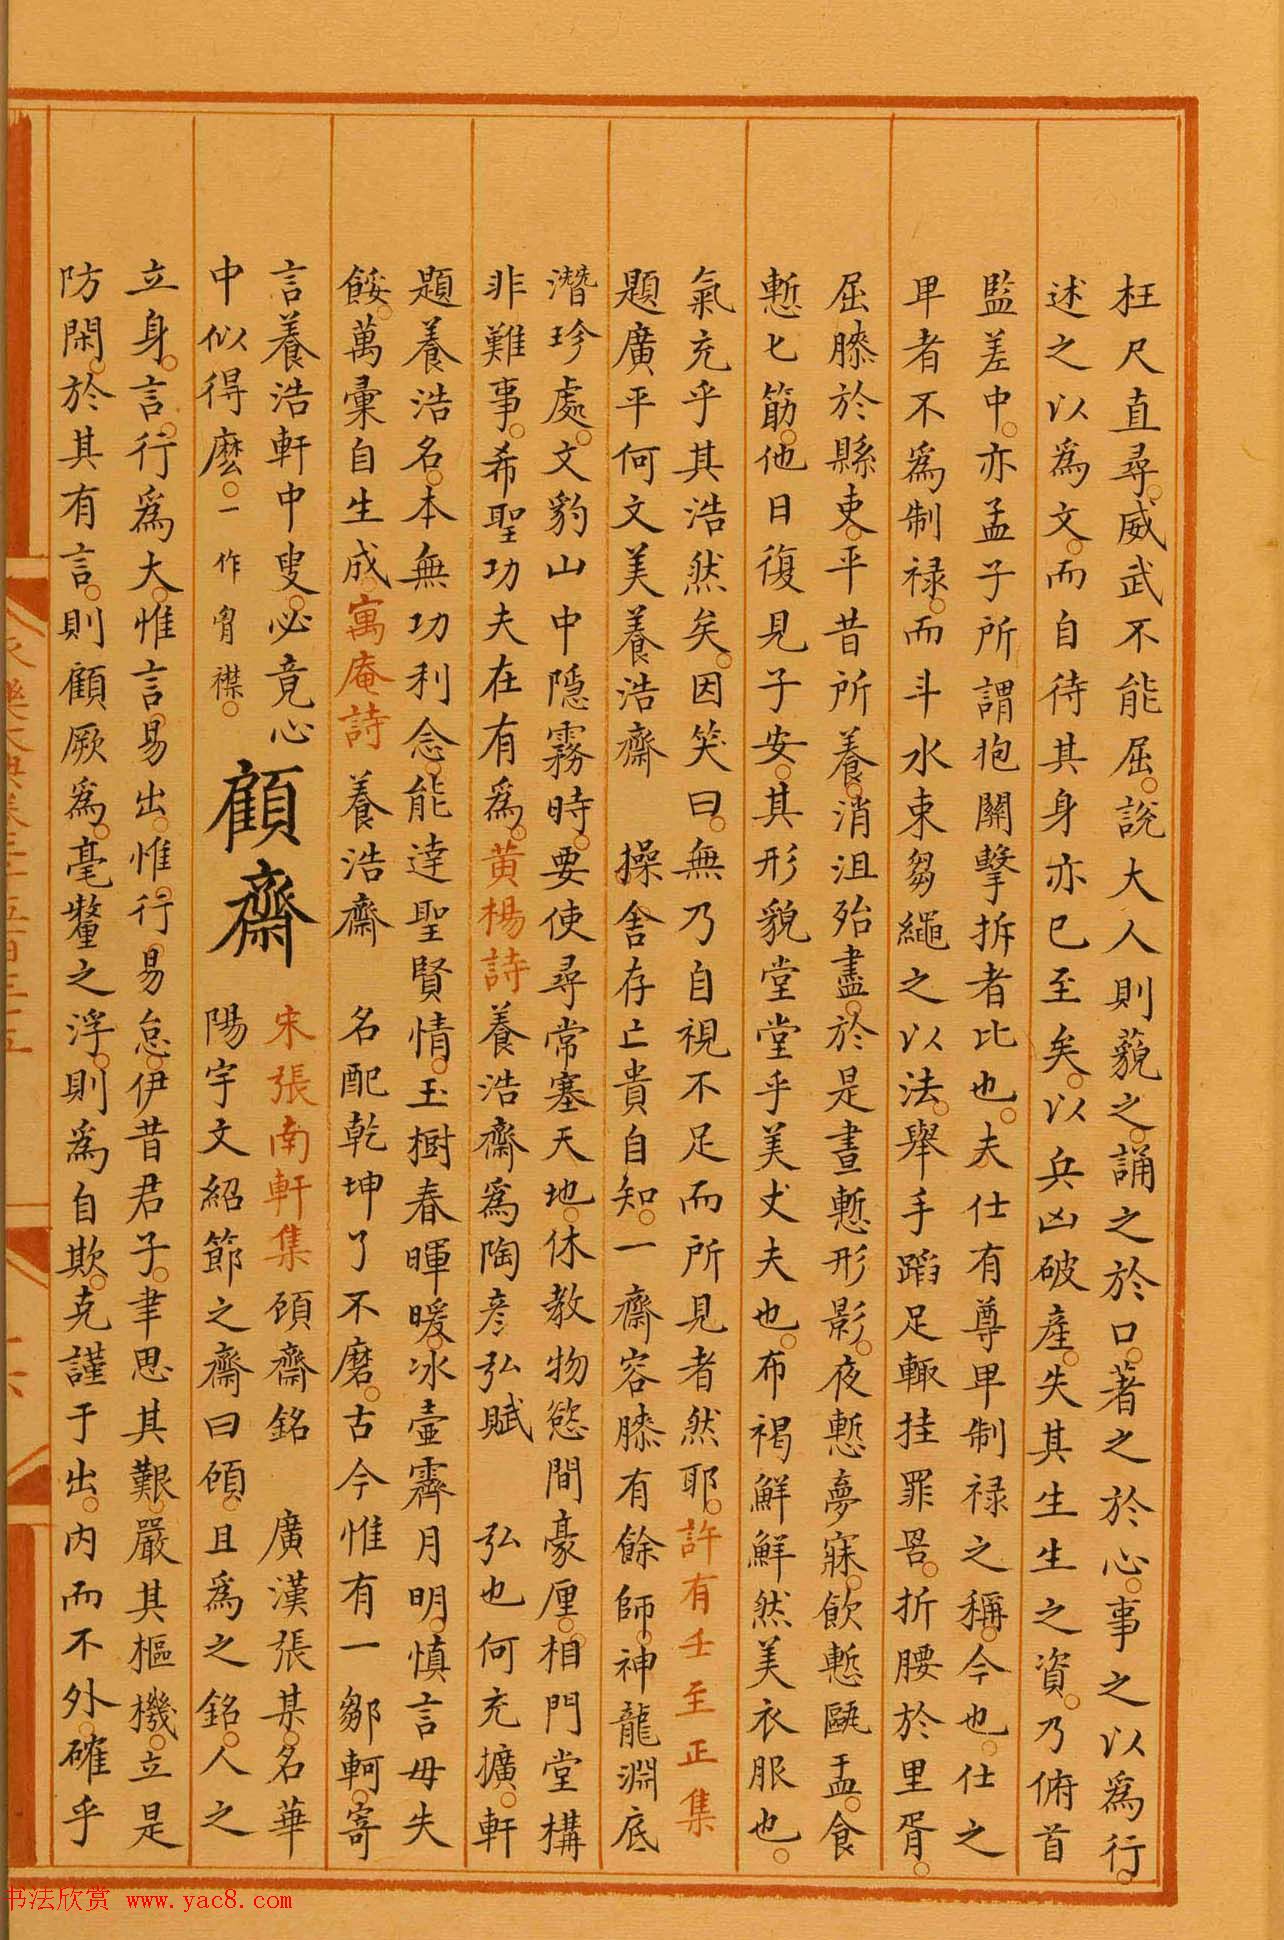 枉尺直尋。威武不能屈。說大人則藐之。誦之於口。著之於心。事之以爲行。
述之以爲文。而自待其身亦已至矣。以兵凶破產。失其生生之資。乃俯首
監差中。亦孟子所謂抱關擊拆者比也。夫仕有尊卑制禄之稱。今也。仕之
卑者不爲制禄。而斗水束芻繩之以法。舉手蹈足輙挂罪罟。折腰於里胥。
屈膝於縣吏。平昔所養。消沮殆盡。於是晝慙形影。夜慙夢寐。飲慙甌盂。食
慙匕筯。他日復見子安。其形貌堂堂乎美丈夫也。布褐鮮鮮然美衣服也。
氣充乎其浩然矣。因笑曰。無乃自視不足而所見者然耶。許有壬至正集
題廣平何文美養浩齋 操舍存亡貴自知。一齋容膝有餘師。神龍淵底
潛珍處。文豹山中隱霧時。要使尋常塞天地。休教物慾間豪厘。相門堂構
非難事。希聖功夫在有爲。黄楊詩養浩齋爲陶彥弘賦 弘也何充擴。軒
題養浩名。本無功利念。能達聖賢情。玉樹春暉暖。冰壺霽月明。慎言毋失
餒。萬彙自生成。寓庵詩 養浩齋 名配乾坤了不磨。古今惟有一鄒軻。寄
言養浩軒中叟。必竟心
中似得麽。一作胷襟。
顧齋
宋張南軒集 頋齋銘 廣漢張某。名華
陽宇文紹節之齋曰頋。且爲之銘。人之
立身。言。行爲大。惟言。易出。惟行。易怠。伊昔君子。聿思其艱。嚴其樞機。立是
防閑。於其有言。則顧厥爲。毫釐之浮。則爲自欺。克謹于出。内而不外。確乎
书法欣赏 www.yac8.com